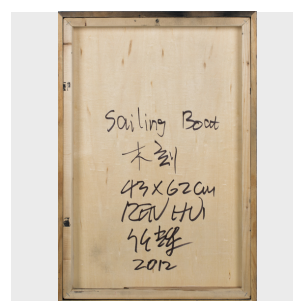 Sailing Boat
木刻
43 x 62 cm
REN HUI
2012